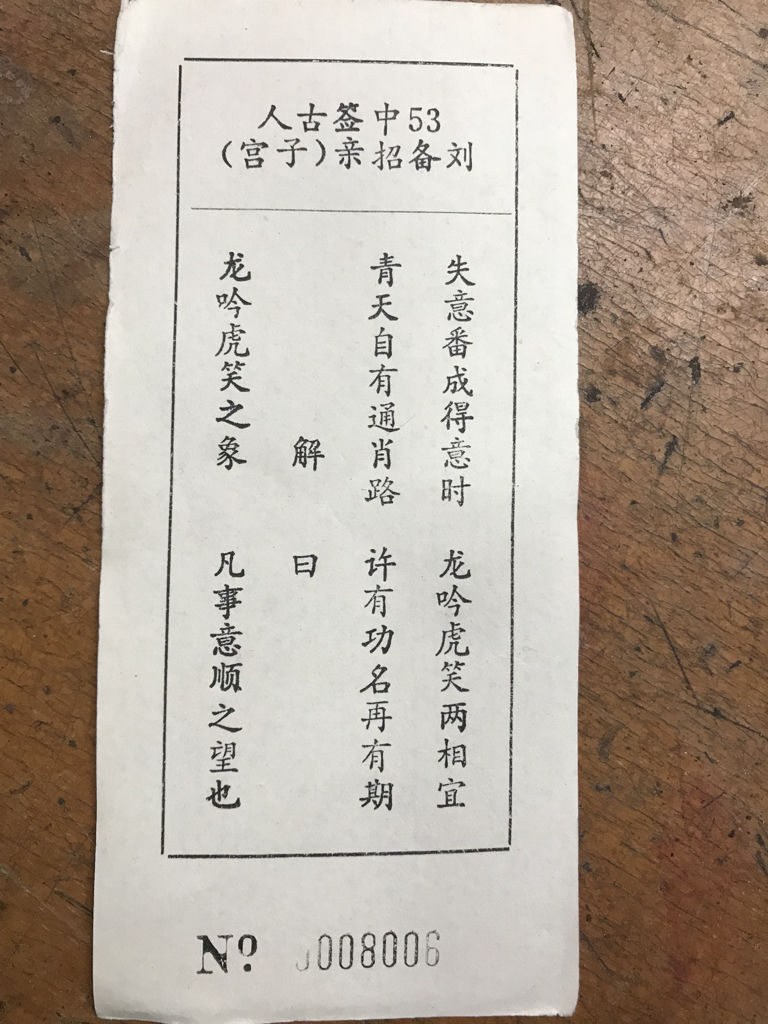 53中签古人
刘备招亲(子宫)
失意番成得意时 龙吟虎笑两相宜
青天自有通肖路 许有功名再有期
解曰
龙吟虎笑之象 凡事意顺之望也
Nº 0008006